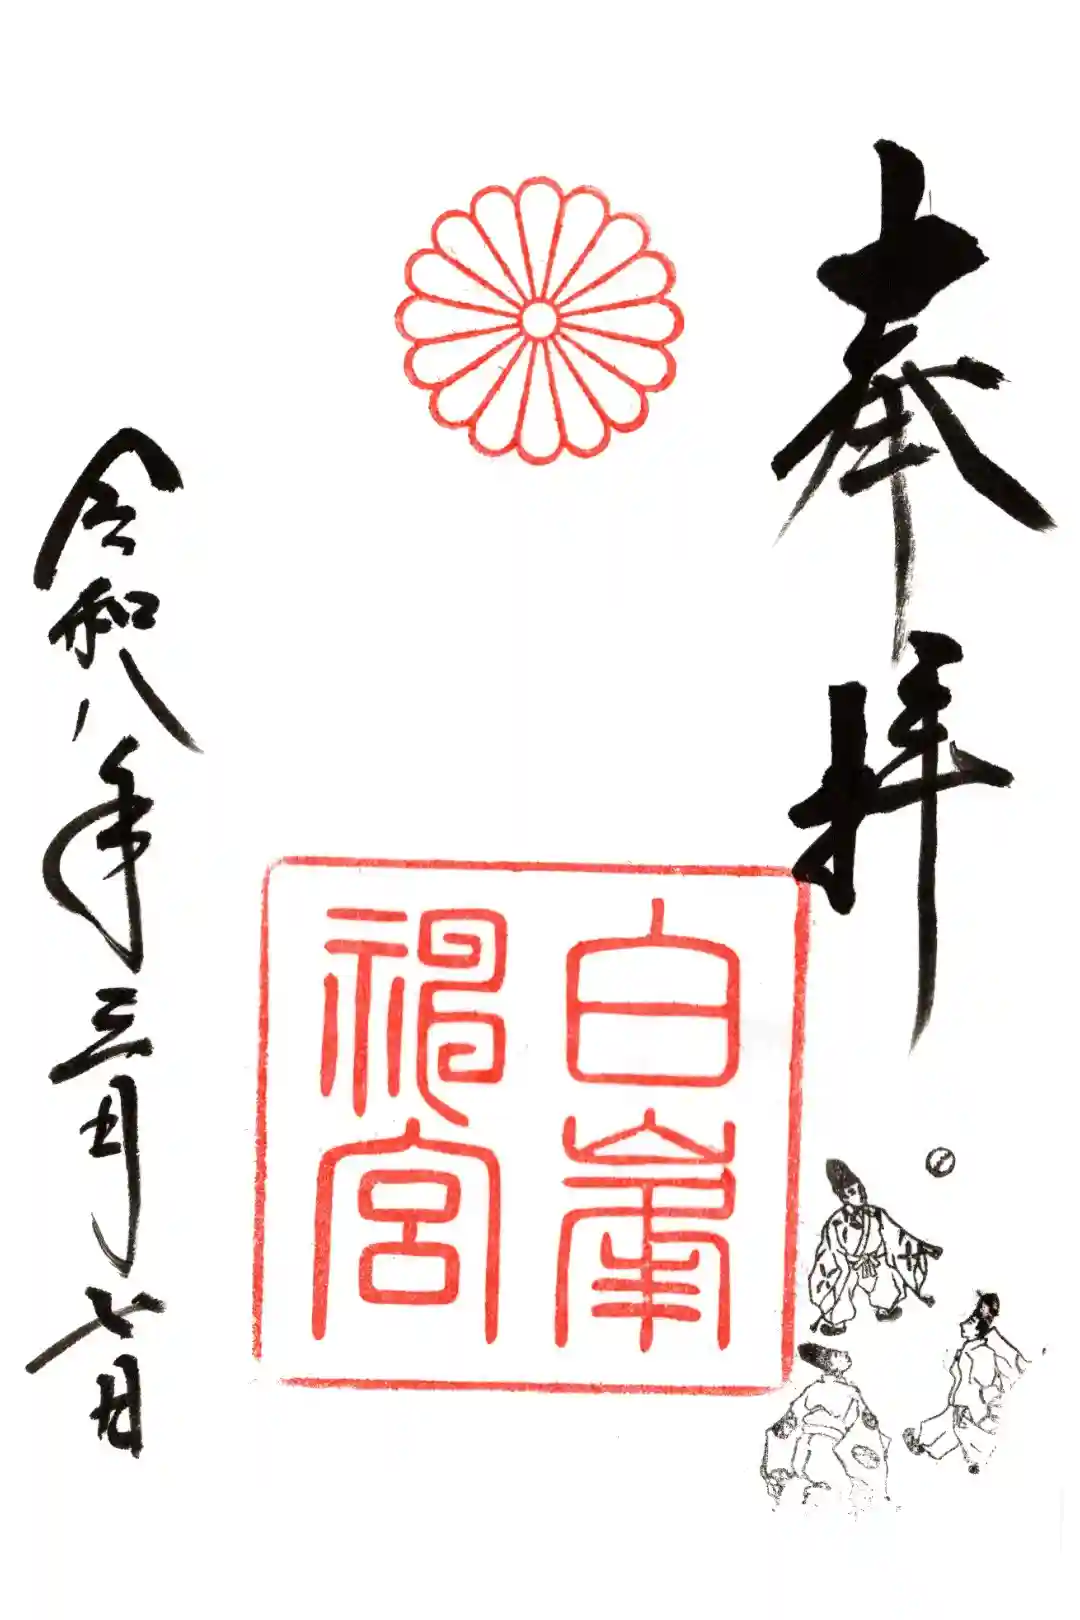 奉拝
白峯
神宮
令和八年三月七日